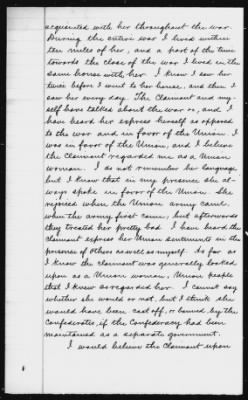 acquainted with her throughout the war.
During the entire war I lived within
ten miles of her, and a part of the time
towards the close of the war I lived in the
same house with her. I know I saw her
twice before I went to her house, and then I
saw her every day. The Claimant and my-
self have talked about the war, and I
have heard her express herself as opposed
to the war and in favor of the Union. I
was in favor of the Union, and I believe
the Claimant regarded me as a Union
woman. I do not remember her language
but I know that in my presence she al-
ways spoke in favor of the Union. She
rejoiced when the Union army came,
when the army first came, but afterwards
they treated her pretty bad. I have heard the
Claimant express her Union sentiments in the
presence of others as well as myself. So far as
I know the claimant was generally looked
upon as a Union woman. Union people
that I knew so regarded her. I cannot say
whether she would or not, but I think she
would have been cast off, or by the
Confederates, if the Confederacy had been
maintained as a separate government.
I would believe the Claimant upon